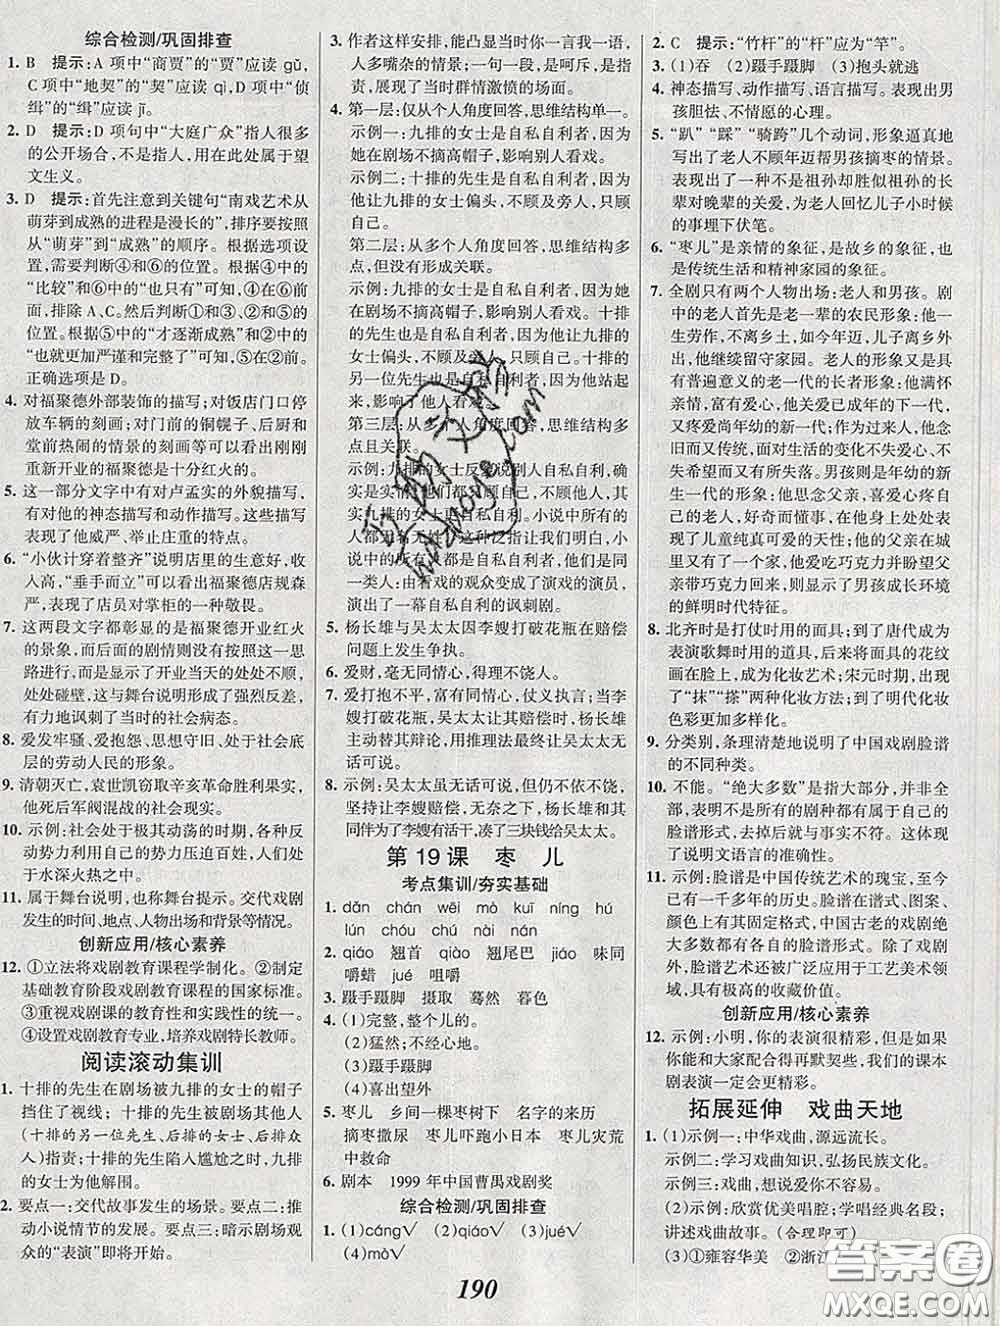 综合检测/巩固排查
1. B 提示:A 项中“商贾”的“贾”应读 gǔ,
C 项中“地契”的“契”应读 qì,D 项中“侦
缉”的“缉”应读 jī。
2. D 提示:D 项句中“大庭广众”指人很多
的公开场合,不是指人,用在此处属于望
文生义。
3. D 提示:首先注意到关键句“南戏艺术从
萌芽到成熟的进程是漫长的”,排序要按照
从“萌芽”到“成熟”的顺序。根据选项设
置,需要判断④和⑥的位置。根据④中的
“比较”和⑥中的“也只有”可知,④在前⑥
在后,排除 A、C。然后判断①和③和⑤的
位置。根据⑤中的“才逐渐成熟”和②中的
“也就更加严谨和完整了”可知,⑤在②前。
正确选项是 D。
4. 对福聚德外部装饰的描写;对饭店门口停
放车辆的刻画;对门前的铜幌子、后厨和
堂前热闹的情景的刻画等可以看出刚刚
重新开业的福聚德是十分红火的。
5. 这一部分文字中有对卢孟实的外貌描写,
有对他的神态描写和动作描写。这些描写
表现了他威严、举止庄重的特点。
6. “小伙计穿着整齐”说明店里的生意好,收
入高,“垂手而立”可以看出福聚德店规森
严,表现了店员对掌柜的一种敬畏。
7. 这两段文字都彰显的是福聚德开业红火
的景象,而后面的剧情则没有按照这一思
路进行,而是显示了开业当天的处处不顺、
处处碰壁,这与舞台说明形成了强烈反差,
有力地讽刺了当时的社会病态。
8. 爱发牢骚、爱抱怨、思想守旧、处于社会底
层的劳动人民的形象。
9. 清朝灭亡,袁世凯窃取辛亥革命胜利果实,
他死后军阀混战的社会现实。
10. 示例:社会处于极其动荡的时期,各种反
动势力用自己的势力压迫百姓,人民处于
水深火热之中。
11. 属于舞台说明,也称舞台提示。交代戏剧
发生的时间、地点、人物出场和背景等情况。
创新应用/核心素养
12. ①立法将戏剧教育课程学制化。②制定
基础教育阶段戏剧教育课程的国家标准。
③重视戏剧课的教育性和实践性的统一。
④设置戏剧教育专业,培养戏剧特长教师。
阅读滚动集训
1. 十排的先生在剧场被九排的女士的帽子
挡住了视线;十排的先生被剧场其他人
(十排的另一位先生、后排的女士、后排众
人)指责;十排的先生陷入尴尬之境,九排
的女士为他解围。
2. 要点一:交代故事发生的场景。要点二:推
动小说情节的发展。要点三:暗示剧场观
众的“表演”即将开始。
3. 作者这样安排,能凸显当时你一言我一语,
人多嘴杂的情景;一句一段,是呵斥,是指
责,展现了当时群情激愤的场面。
4. 第一层:仅从个人角度回答,思维结构单一。
示例一:九排的女士是自私自利者,因为
她在剧场不摘高帽子,影响别人看戏。
示例二:十排的先生是自私自利者,因为
他让九排的女士偏头,不顾及别人,只顾
自己。
第二层:从多个人角度回答,思维结构多
点,但没有形成关联。
示例:九排的女士是自私自利者,因为她
在剧场不摘高帽子,影响别人看戏。十排
的先生也是自私自利者,因为他让九排的
女士偏头,不顾及别人,只顾自己。十排的
另一位先生也是自私自利者,因为他站起
来,影响了他人看戏……
第三层:从多个人角度回答,思维结构多点
且关联。
示例:九排的女士反复说别人自私自利,其
实是他们都只顾自己,没有顾及别人,的
确是自私自利者。小说中所有
的人都没有姓名,这种泛指让我们明白,小
剧场里都是自私自利者,小剧场外也都有
同一类人;由看戏的观众变成了演戏的演员,
演出了一幕自私自利的讽刺剧。
5. 杨长雄与吴太太因李嫂打破花瓶在赔偿
问题上发生争执。
6. 爱财,毫无同情心,得理不饶人。
7. 爱打抱不平,富有同情心,仗义执言;当李
嫂打破花瓶,吴太太让其赔偿时,杨长雄
主动替其辩护,用推理法最终让吴太太无
话可说。
8. 示例:吴太太无话可说,但仍不依不饶,
坚持让李嫂赔偿,无奈之下,杨长雄和其
同伴为了李嫂有活干,凑了三块钱给吴太太。
第 19 课 枣 儿
考点集训/夯实基础
1. dǎn chán wēi mò kuī níng hú
lún chóu chú nài nán
2. qiáo 翘首 qiào 翘尾巴 味同
嚼蜡 jué 咀嚼
3. 蹑手蹑脚 摄取 蓦然 暮色
4. (1)完整,整个儿的。
(2)猛然;不经心地。
(3)蹑手蹑脚
(4)喜出望外
5. 枣儿 乡间一棵枣树下 名字的来历
摘枣撒尿 枣儿吓跑小日本 枣儿灾荒
中救命
6. 剧本 1999 年中国曹禺戏剧奖
综合检测/巩固排查
1. (1)cáng√ (2)qiáo√ (3)jué√
(4)mò√
2. C 提示:“竹杆”的“杆”应为“竿”。
3. (1)吞 (2)蹑手蹑脚 (3)抱头就逃
4. 神态描写、动作描写、语言描写。表现出男
孩胆怯、不情愿的心理。
5. “趴”“踩”“骑跨”几个动词,形象逼真地
写出了老人不顾年迈帮男孩摘枣的情景。
表现出了一种不是祖孙却胜似祖孙的长
辈对晚辈的关爱,为老人回忆儿子小时候
的事埋下伏笔。
6. “枣儿”是亲情的象征,是故乡的象征,也
是传统生活和精神家园的象征。
7. 全剧只有两个人物出场:老人和男孩。剧
中的老人首先是老一辈的农民形象,他一
生不愿离乡离土,如今年迈,儿子离开家乡,
他继续留守家园。老人的形象又是具有
普遍意义的老一代的长者形象:他们勤劳
善良,充满亲情,关爱已成年的下一代,
又疼爱尚年幼的新一代;作为过来人,他念
旧而又对生活的变化不失爱心、不失
希望而又有所失落。男孩则是年幼的新
生一代的形象。他思念父亲,喜爱疼自己
的老人,好奇而懂事,在他身上处处表现
了儿童纯真可爱的天性;他无忧无虑在城
里享受生活,他爱吃巧克力并盼望父
亲带巧克力回来,体现了男孩成长环境
的鲜明时代特征。
8. 北齐时是打仗时用的面具;到了唐代成为
表演歌舞时用的道具,后来面具的花纹
画在脸上,成为化妆艺术;宋元时期,出现
了“抹”“搽”两种化妆方法;到了明代化妆
色彩更加多样化。
9. 分类别,条理清楚地说明了中国戏剧脸谱
的不同种类。
10. 不能。“绝大多数”是指大部分,并非全
部,表明不是所有的剧种都有属于自己的
脸谱形式,去掉后就与事实不符。这体现
了说明文语言的准确性。
11. 示例:脸谱是中国传统艺术的瑰宝,至今
已有一千多年的历史。脸谱在谱式、图案、
颜色上有其固定格式,中国古老的戏剧
绝大多数有脸谱形式。除了戏剧领
域,脸谱艺术还被广泛应用于工艺美术领
域,具有极高的收藏价值。
创新应用/核心素养
12. 示例:小明,你的表演很精彩,但是如果
你能和大家配合得再默契些,我们的课本
剧表演一定会更精彩。
拓展延伸 戏曲天地
1. (1)示例一:中华戏曲,源远流长。
示例二:学习戏曲知识,弘扬民族文化。
示例三:戏曲,想说爱你不容易。
(2)示例:欣赏优美唱腔;学唱经典名段;
讲述戏曲故事。(合理即可)
(3)①雍容华美 ②浙江
190
答案圈
MXQE.COM